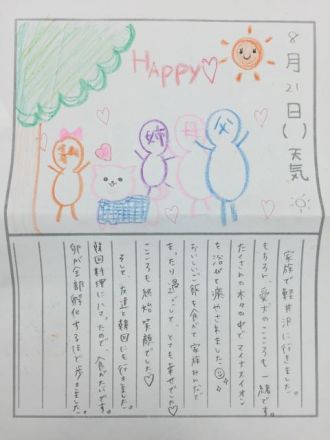 8月21日( )天気
HAPPY♡
私
姉
母
父
家族で軽井沢に行きました。
もちろん、愛犬のこころも一緒です。
たくさんの木々の中でマイナスイオン
を浴びて癒やされました
おいしいご飯を食べて、家族みんなで
まったり過ごして、とても幸せでした♡
こころも終始笑顔でした♡
そして、友達と韓国にも行きました。
韓国料理にハマったので、食べたいです。
卵が全部孵化するほど歩きました。